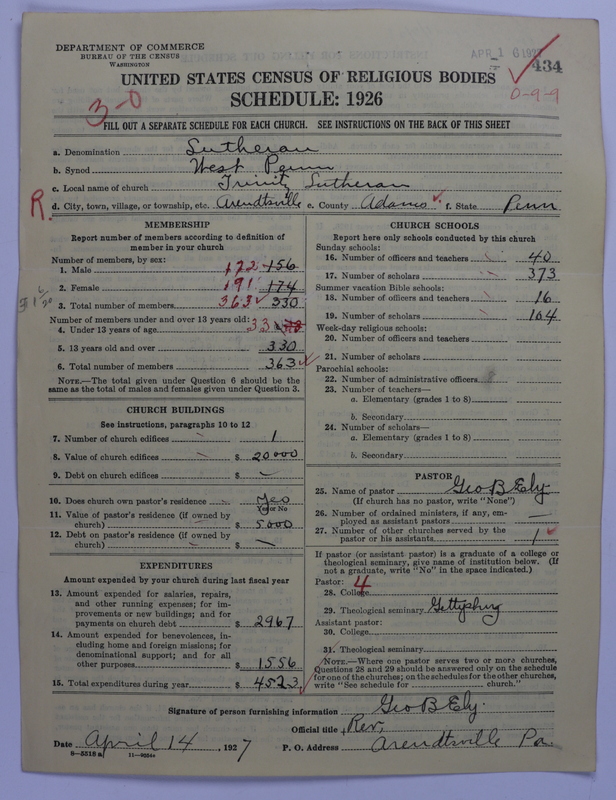 DEPARTMENT OF COMMERCE
BUREAU OF THE CENSUS
WASHINGTON
APR 16 1927
434
UNITED STATES CENSUS OF RELIGIOUS BODIES
SCHEDULE: 1926
3-0
0-9-9
FILL OUT A SEPARATE SCHEDULE FOR EACH CHURCH. SEE INSTRUCTIONS ON THE BACK OF THIS SHEET
a. Denomination Lutheran
b. Synod West Penn
c. Local name of church Trinity Lutheran
R. d. City, town, village, or township, etc. Arendtsville e. County Adams f. State Penn
MEMBERSHIP
Report number of members according to definition of
member in your church
Number of members, by sex:
1. Male 172 156
2. Female 191 174
3. Total number of members 363 330
Number of members under and over 13 years old:
4. Under 13 years of age 33
5. 13 years old and over 330
6. Total number of members 363
NOTE.—The total given under Question 6 should be the
same as the total of males and females given under Question 3.
CHURCH BUILDINGS
See instructions, paragraphs 10 to 12
7. Number of church edifices 1
8. Value of church edifices $ 20000
9. Debt on church edifices $ —
10. Does church own pastor's residence Yes
Yes or No
11. Value of pastor's residence (if owned by
church) $ 5000
12. Debt on pastor's residence (if owned by
church) $ —
EXPENDITURES
Amount expended by your church during last fiscal year
13. Amount expended for salaries, repairs,
and other running expenses; for im-
provements or new buildings; and for
payments on church debt $ 2967
14. Amount expended for benevolences, in-
cluding home and foreign missions; for
denominational support; and for all
other purposes $ 1556
15. Total expenditures during year $ 4523
CHURCH SCHOOLS
Report here only schools conducted by this church
Sunday schools:
16. Number of officers and teachers 40
17. Number of scholars 373
Summer vacation Bible schools:
18. Number of officers and teachers 16
19. Number of scholars 104
Week-day religious schools:
20. Number of officers and teachers
21. Number of scholars
Parochial schools:
22. Number of administrative officers
23. Number of teachers—
a. Elementary (grades 1 to 8)
b. Secondary
24. Number of scholars—
a. Elementary (grades 1 to 8)
b. Secondary
PASTOR
25. Name of pastor Geo B Ely
(If church has no pastor, write "None")
26. Number of ordained ministers, if any, em-
ployed as assistant pastors —
27. Number of other churches served by the
pastor or his assistants 1
If pastor (or assistant pastor) is a graduate of a college or
theological seminary, give name of institution below. (If
not a graduate, write "No" in the space indicated.)
Pastor: 4
28. College
29. Theological seminary Gettysburg
Assistant pastor:
30. College
31. Theological seminary
NOTE.—Where one pastor serves two or more churches,
Questions 28 and 29 should be answered only on the schedule
for one of the churches; on the schedules for the other churches,
write "See schedule for church."
Signature of person furnishing information Geo B Ely.
Official title Rev,
Date April 14, 1927 P. O. Address Arendtsville Pa.